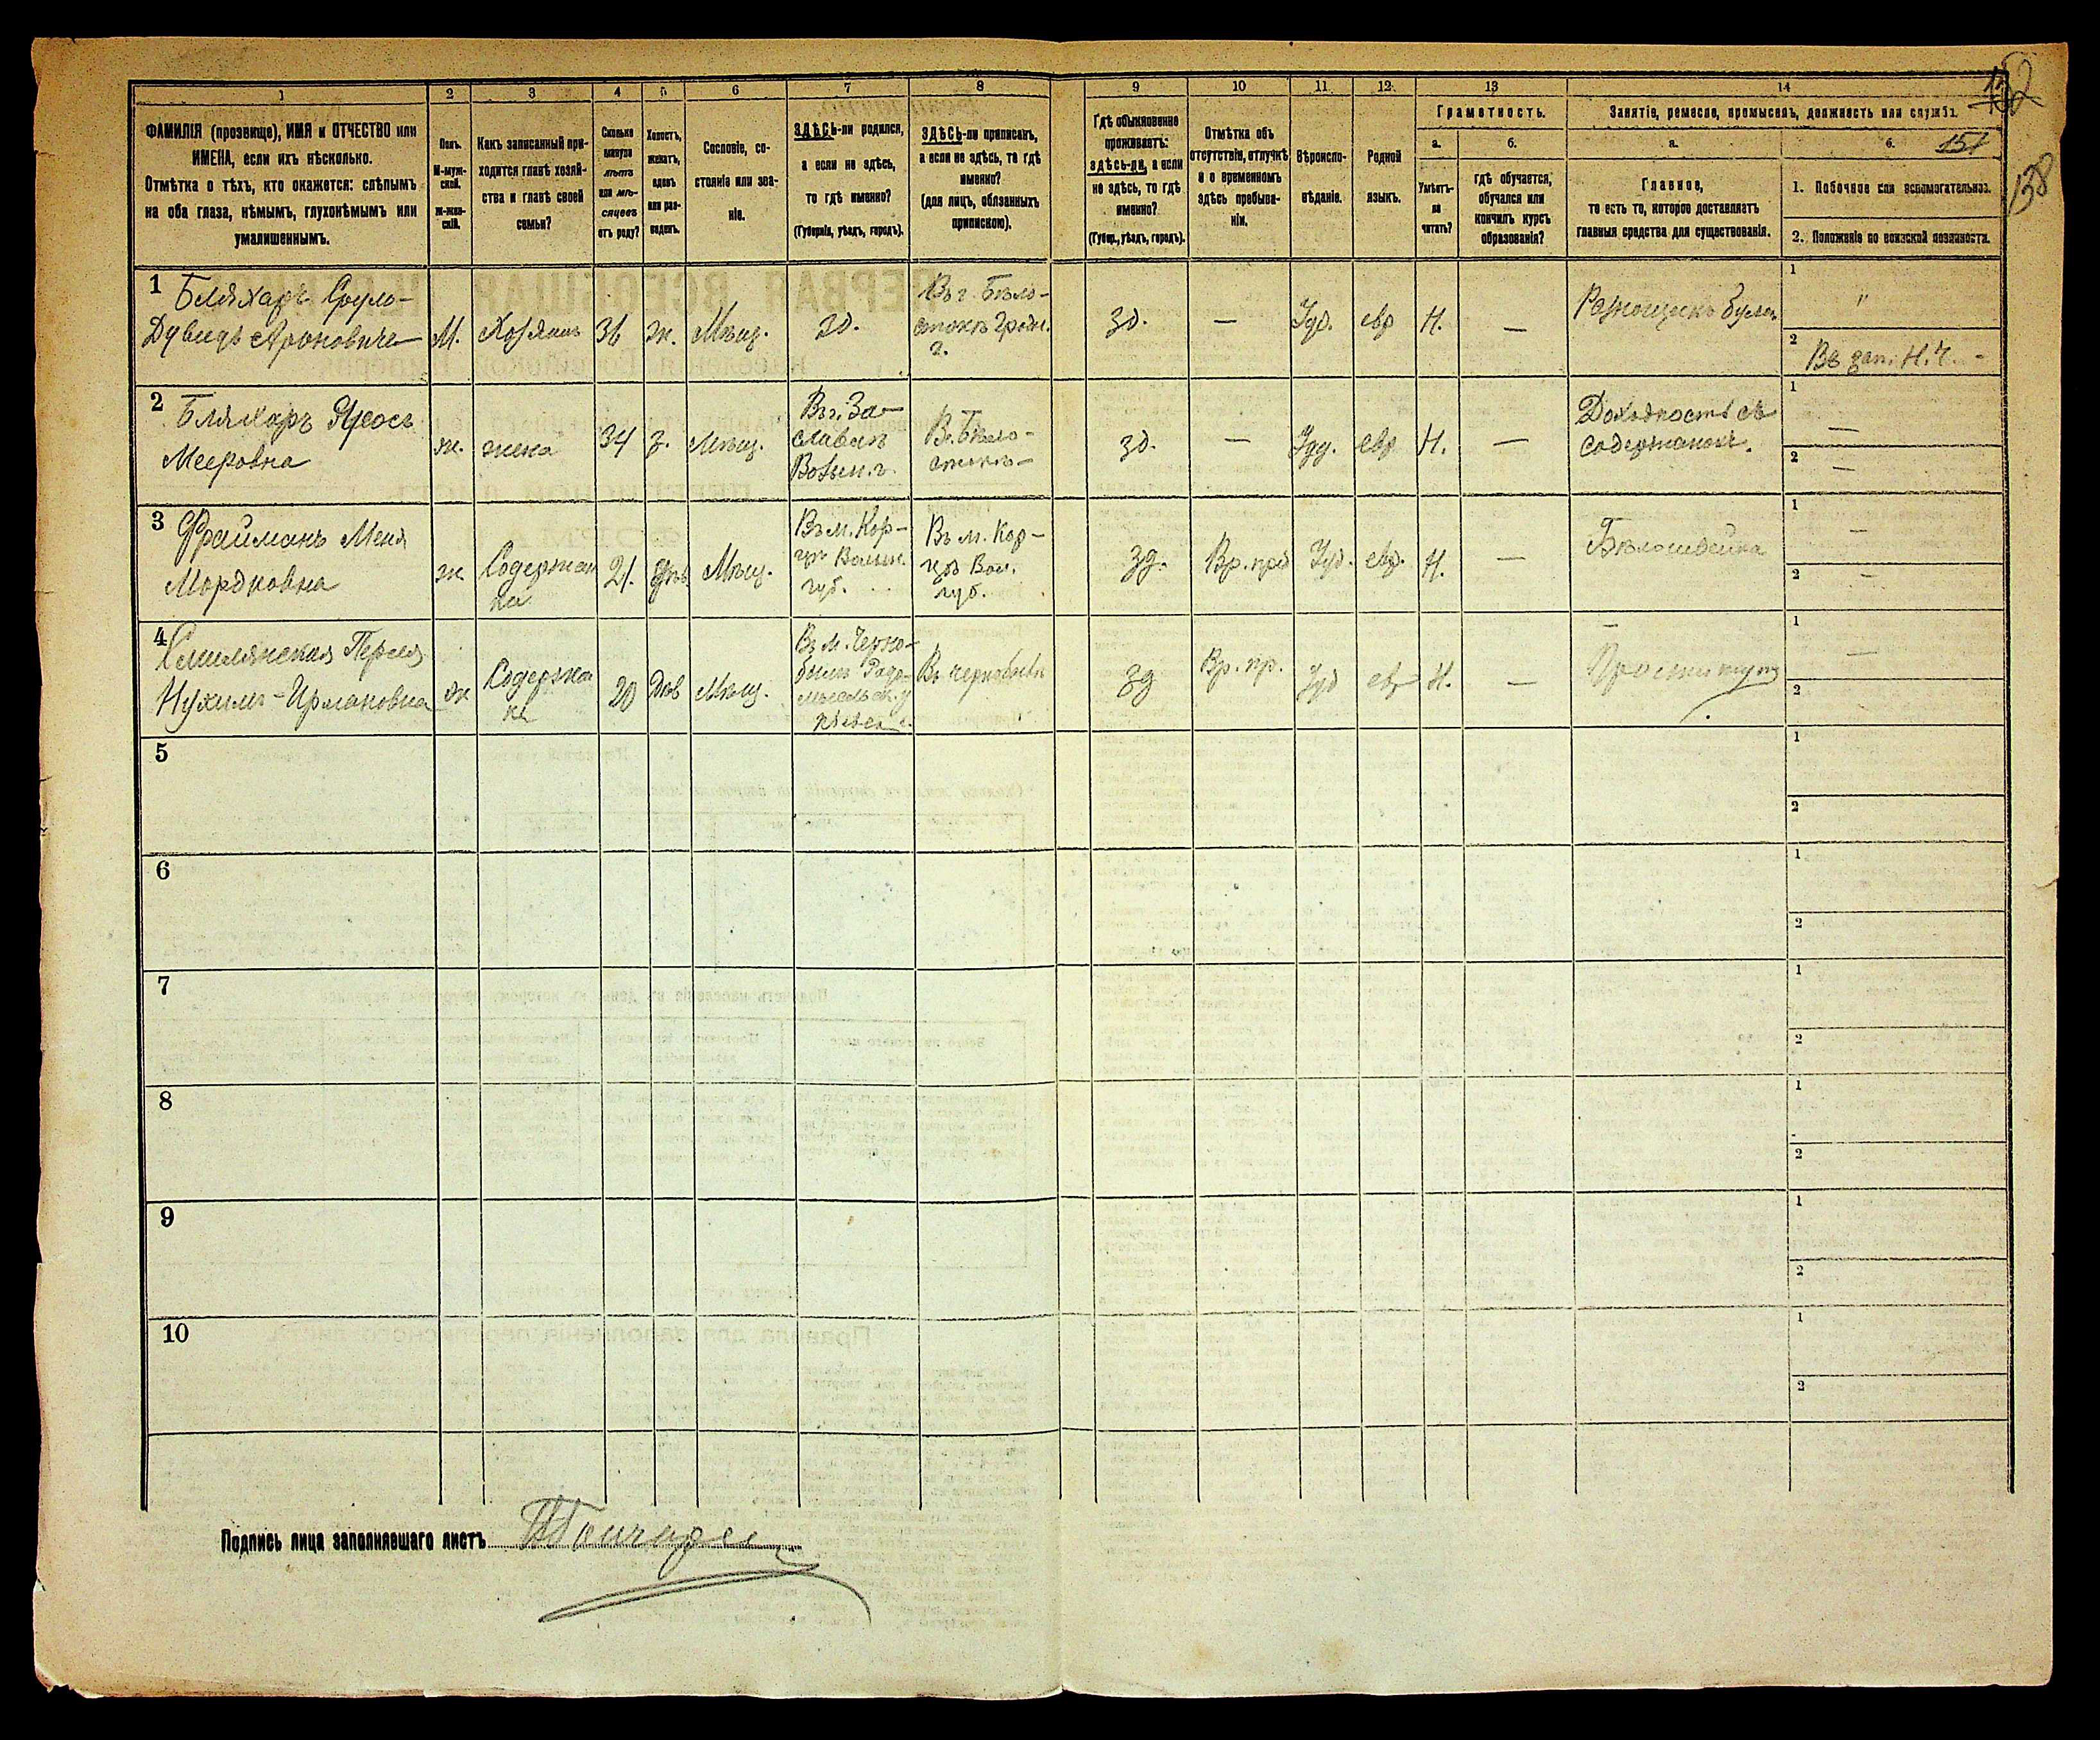 152
151
138
1
2
3
4
5
6
7
8
9
10
11
12
13
14
ФАМИЛІЯ (прозвище), ИМЯ и ОТЧЕСТВО или
ИМЕНА, если ихъ нѣсколько.
Отмѣтка о тѣхъ, кто окажется: слѣпымъ
на оба глаза, нѣмымъ, глухонѣмымъ или
умалишеннымъ.
Полъ.
М-муж-
ской.
Ж-жен-
скій.
Какъ записанный при-
ходится главѣ хозяй-
ства и главѣ своей
семьи?
Сколько
минуло
лѣтъ
или мѣ-
сяцевъ
отъ роду?
Холостъ,
женатъ,
вдовъ
или раз-
веденъ.
Сословіе, со-
стояніе или зва-
ніе.
ЗДѢСЬ-ли родился,
а если не здѣсь,
то гдѣ именно?
(Губернія, уѣздъ, городъ).
ЗДѢСЬ-ли приписанъ,
а если не здѣсь, то гдѣ
именно?
(для лицъ, обязанныхъ
припискою).
Гдѣ обыкновенно
проживаетъ:
здѣсь-ли, а если
не здѣсь, то гдѣ
именно?
(Губер., уѣздъ, городъ).
Отмѣтка объ
отсутствіи, отлучкѣ
и о временномъ
здѣсь пребыва-
ніи.
Вѣроиспо-
вѣданіе.
Родной
языкъ.
Грамотность.
а.
Умѣетъ-
ли
читать?
б.
гдѣ обучается,
обучался или
кончилъ курсъ
образованія?
Занятіе, ремесло, промыселъ, должность или служба.
а.
Главное,
то есть то, которое доставляетъ
главныя средства для существованія.
б.
1. Побочное или вспомогательное.
2. Положеніе по воинской повинности.
1
Бляхаръ Сруль-
Дувидъ Ароновичъ
М.
Хозяинъ
36
ж.
Мѣщ.
зд.
Въ г. Бѣло-
стокѣ Гродн.
г.
зд.
—
Іуд.
евр
Н.
—
Разнощикъ булокъ
1
"
2
Въ зап. Н. Ч. -
2
Бляхаръ
Мееровна
ж.
жена
34
з.
Мѣщ.
Въ г. За-
славлѣ
Волын. г.
В. Бѣло-
стокѣ—
зд.
—
Іуд.
евр
Н.
—
Доходность съ
содержанокъ.
1
—
2
—
3
Файманъ Меня
Мордковна
ж
Содержан
ка
21.
Мѣщ.
Въ м. Кор-
цѣ Волын.
губ.
Въ м. Кор-
цѣ Вол.
губ.
зд.
Вр. преб
Іуд.
евр.
Н.
—
Бѣлошвейка
1
—
2
—
4
Смилянская Перля
Нухимъ-Ирмановна
ж
Содержа
ка
20
Дѣв
Мѣщ.
Въ м. Черно-
былѣ Радо-
мысльск. у
Кіевск. г.
Въ Чернобылѣ
зд
Вр. пр.
Іуд
евр
Н.
—
—
Проститут
1
—
2
5
1
2
6
1
2
7
1
2
8
1
2
9
1
2
10
1
2
Подпись лица заполнявшаго листъ